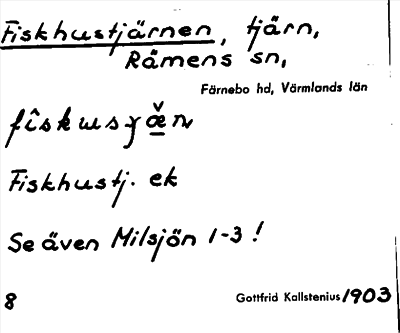 Fiskhustjärnen, tjärn,
Rämens sn,
Färnebo hd, Värmlands län
Fiskhustj. ek
Se även Milsjön 1-3 !
8
Gottfrid Kallstenius 1903